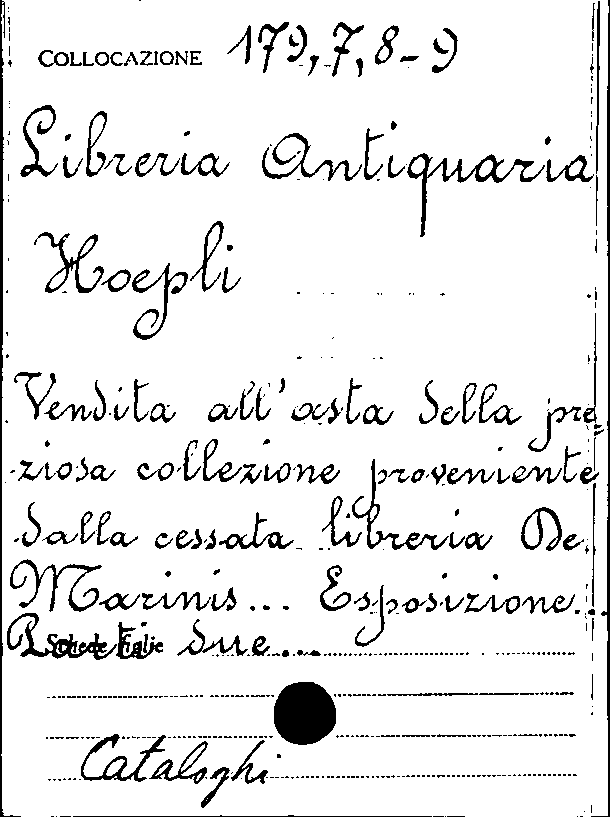 COLLOCAZIONE 179,7,8-9
Libreria Antiquaria
Hoepli
Vendita all'asta della pre=
ziosa collezione proveniente
dalla cessata libreria De
Marinis... Esposizione...
Parti due...
Schede Figlie
Cataloghi